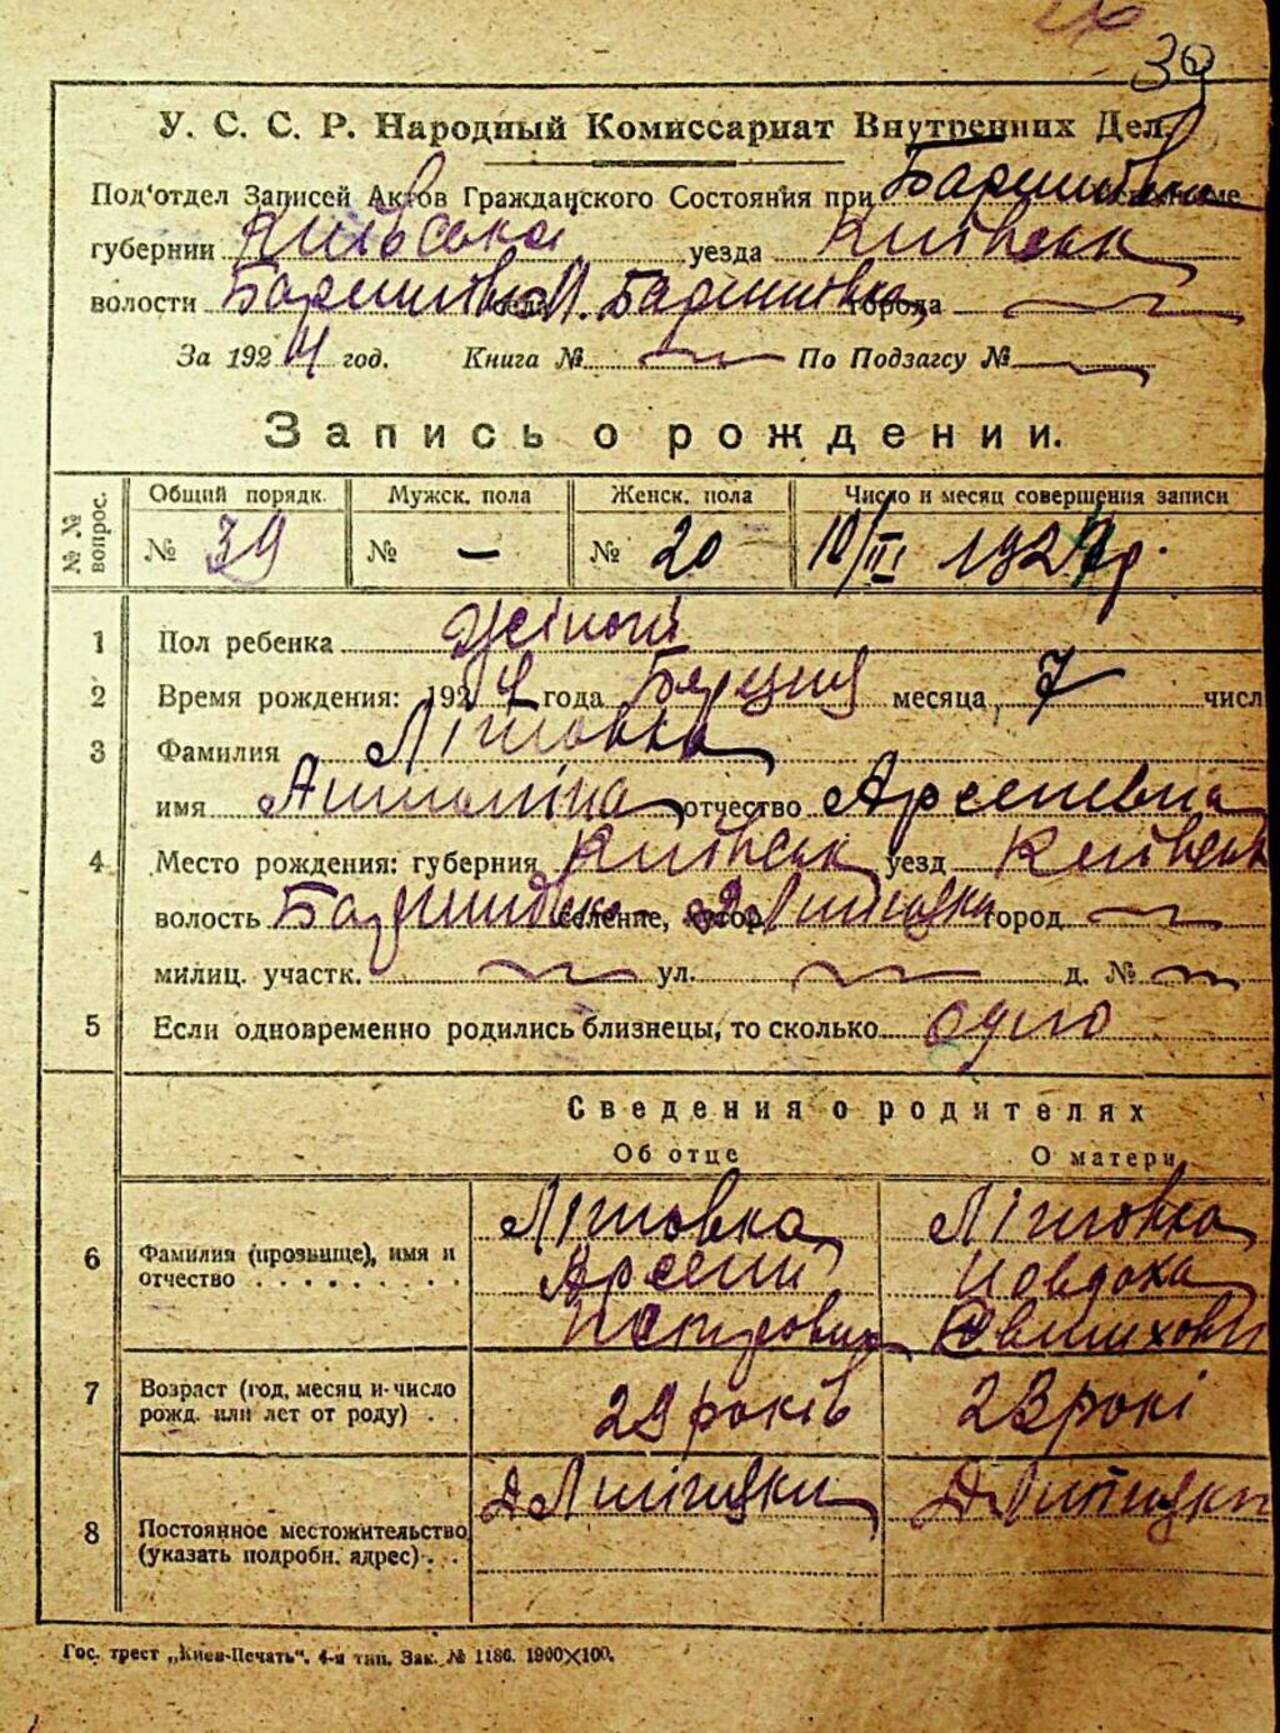 39
У. С. С. Р. Народный Комиссариат Внутренних Дел.
Под'отдел Записей Актов Гражданского Состояния при Баришівськ
губернии Київська уезда Київськ
волости Баришівськ села М. Баришівка города
За 1924 год. Книга № По Подзагсу №
Запись о рождении.
№ № вопрос. Общий порядк. Мужск. пола Женск. пола Число и месяц совершения записи
№ 39 № — № 20 10/III 1924 р.
1 Пол ребенка Жіночі
2 Время рождения: 1924 года Березня месяца, 7 числ
3 Фамилия Літовка
имя отчество Арсенєвна
4 Место рождения: губерния Київськ уезд Київськ
волость Баришівськ селение, хутор город
милиц. участк. ул. д. №
5 Если одновременно родились близнецы, то сколько одно
Сведения о родителях
Об отце О матери
6 Фамилия (прозвище), имя и отчество . . . . . . . . . Літовка Арсений Петрович Літовка Йовдоха
7 Возраст (год, месяц и число рожд. или лет от роду) . . 29 років 23 рокі
8 Постоянное местожительство (указать подробн. адрес) . . .
Гос. трест „Киев-Печать“. 4-я тип. Зак. № 1186. 1900×100.